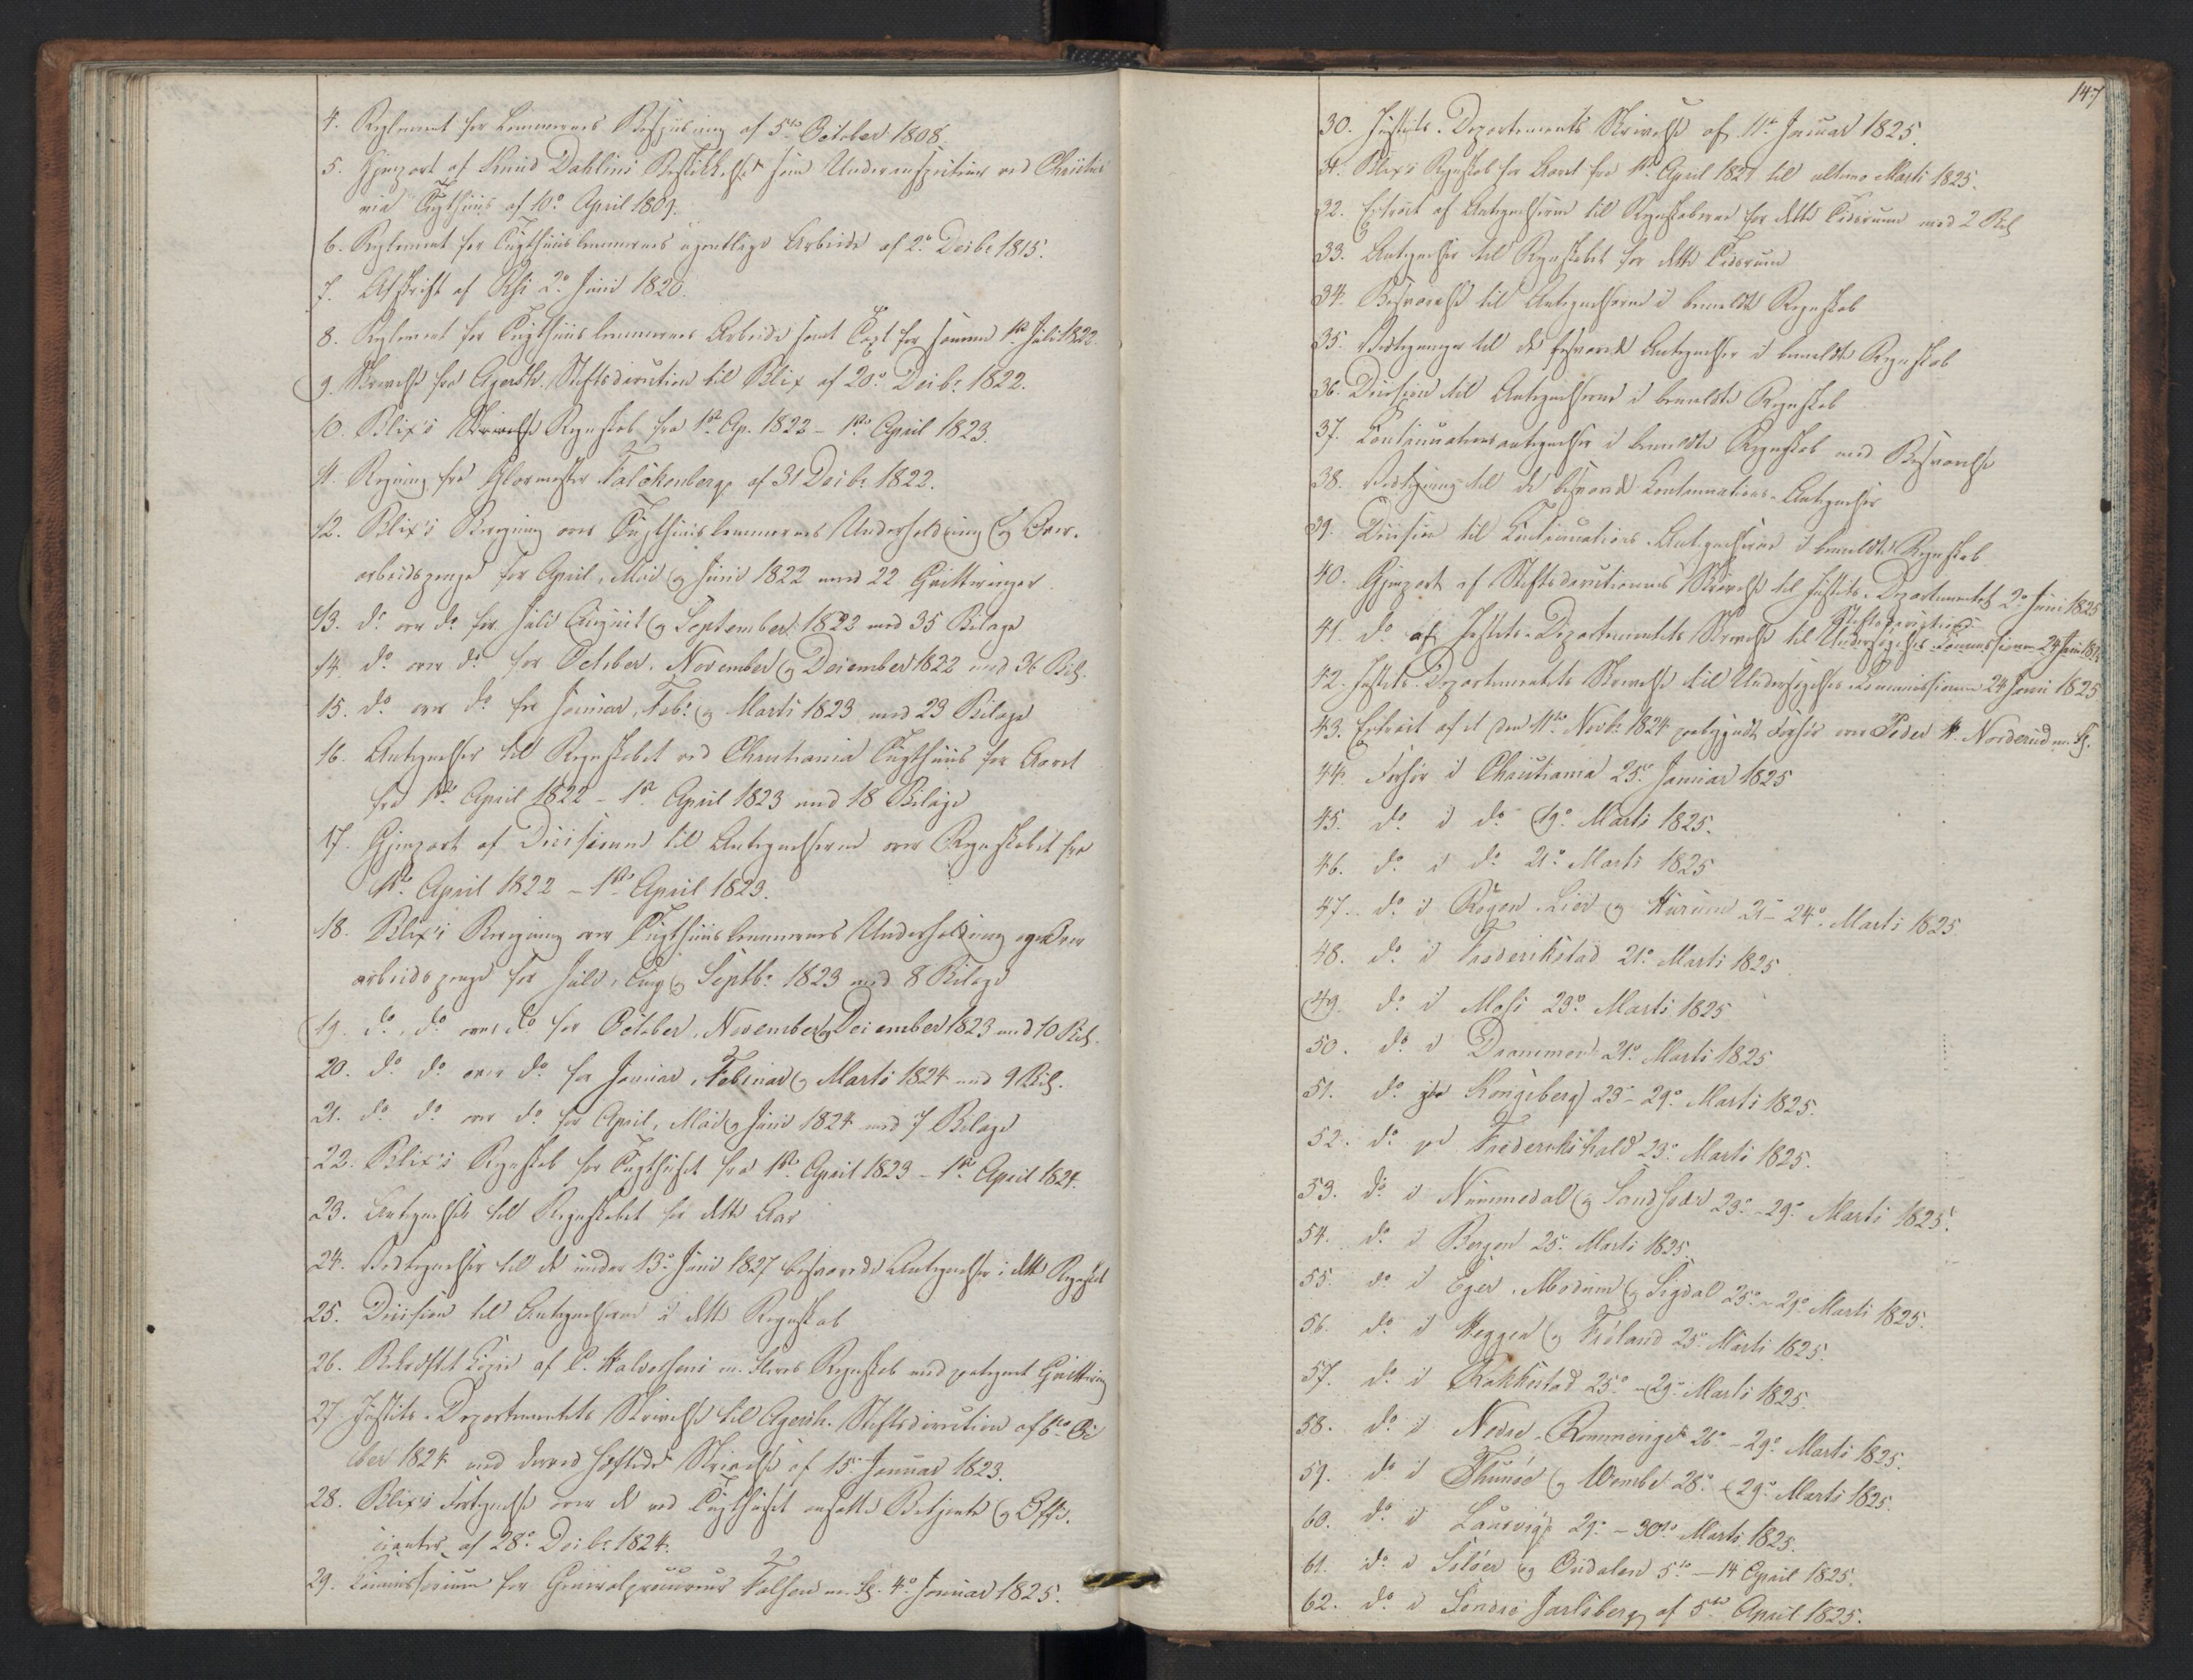 4. Reglement for Lemmernes Bespiisning af 5te October 1808.
5. Gjenpart af Knud Dahlins Bestikkelse som Underinspecteur ved Christia
nia Tugthuus af 10de April 1809.
6. Reglement for Tugthuuslemmernes ugentlige Arbeide af 2de Decbr 1815.
7. Afskrift af Res 2de Juni 1820.
8. Reglement for Tugthuuslemmernes Arbeide samt Taxt for samme 1ste Juli 1822.
9. Skrivelse fra Agersh. Stiftsdirection til Blix af 20de Decbr. 1822.
10. Blix's Regnskab fra 1ste Ap. 1822 - 1ste April 1823.
11. Regning fra Glarmester Falckenberg af 31 Decbr. 1822.
12. Blix's Beregning over Tugthuuslemmernes Underholdning og Over-
arbeidspenge for April, Mai og Juni 1822 med 22 Qvitteringer.
13. do over do for Juli August og September 1822 med 35 Bilage
14. do over do for October, November og December 1822 med 34 Bil.
15. do over do for Januar, Febr. og Marts 1823 med 23 Bilage
16. Antegnelser til Regnskabet ved Christiania Tugthuus for Aaret
fra 1ste April 1822 - 1ste April 1823 med 18 Bilage
17. Gjenpart af Decisionen til Antegnelserne over Regnskabet fra
1ste April 1822 - 1ste April 1823.
18. Blix's Beregning over Tugthuuslemmernes Underholdning og Over
arbeidspenge for Juli, Aug og Septbr. 1823 med 8 Bilage
19. do. do over do for October, November og December 1823 med 10 Bil.
20. do do over do for Januar, Februar og Marts 1824 med 9 Bil.
21. do do over do for April, Mai og Juni 1824 med 7 Bilage
22. Blix's Regnskab for Tugthuset fra 1ste April 1823 - 1ste April 1824.
23. Antegnelser til Regnskabet for dette Aar
24. Vedtegnelser til de under 13de Juni 1827 besvarede Antegnelser i dette Regnskab
25. Decision til Antegnelserne i dette Regnskab
26. Bekræftet Copie af P. Halvorsens m. fleres Regnskab med paategnet Qvittering
27. Justits-Departementets Skrivelse til Agersh. Stiftsdirection af 6te Oc
tober 1824 med derved hæftede Skrivelse af 15de Januar 1823.
28. Blix's Fortegnelse over de ved Tugthuset ansatte Betjente og Offi-
cianter af 28de Decbr. 1824.
29. Commissorium for Generalprocureur Falsen m. Fl. 4de Januar 1825.
147
30. Justits-Departements Skrivelse af 11te Januar 1825.
31. Blix's Regnskab for Aaret fra 1ste April 1824 til ultimo Marts 1825.
32. Extract af Antegnelserne til Regnskaberne for dette Tidsrum med 2 Bil
33. Antegnelser til Regnskabet for dette Tidsrum
34. Besvarelse til Antegnelserne i bemeldte Regnskab
35. Vedtegninger til de besvarede Antegnelser i bemeldte Regnskab
36. Decision til Antegnelserne i bemeldte Regnskab
37. Continuationsantegnelser i bemeldte Regnskab med Besvarelse
38. Vedtegning til de besvarede Continuations-Antegnelser
39. Decision til Continuations-Antegnelserne i bemeldte Regnskab
40. Gjenpart af Stiftsdirectionens Skrivelse til Justits-Departementet 2de Juni 1825
Stiftsdirectionen
41. do af Justits-Departementets Skrivelse til Undersøgelses Commissionen 24 Juni 1825
42. Justits-Departementets Skrivelse til Undersøgelses Commissionen 24 Juni 1825
43. Extract af et den 11te Novbr. 1824 paabegyndt Forhør over Peder H. Norderud m. Fl.
44. Forhør i Christiania 25de Januar 1825
45. do i do 19de Marts 1825.
46. do i do 21de Marts 1825
47. do i Røgen, Lier og Hurum 21 - 24de Marts 1825.
48. do i Frederikstad 21de Marts 1825
49. do i Moss 23de Marts 1825
50. do i Drammen 21de Marts 1825
51. do paa Kongsberg 23 - 29de Marts 1825.
52. do paa Frederikshald 23de Marts 1825.
53. do i Nummedal og Sandsvær 23de - 29de Marts 1825.
54. do i Bergen 25de Marts 1825.
55. do i Eger, Modum og Sigdal 25de - 29de Marts 1825.
56. do i Heggen og Frøland 25de Marts 1825.
57. do i Rakkestad 25de - 29de Marts 1825.
58. do i Nedre-Rommerige 26de - 29de Marts 1825.
59. do i Thunøe og Wembe 28de - 29de Marts 1825.
60. do i Laurvig 29de - 30te Marts 1825.
61. do i Soløer og Oudalen 5te - 14 April 1825.
62. do i Søndre Jarlsberg af 5te April 1825.